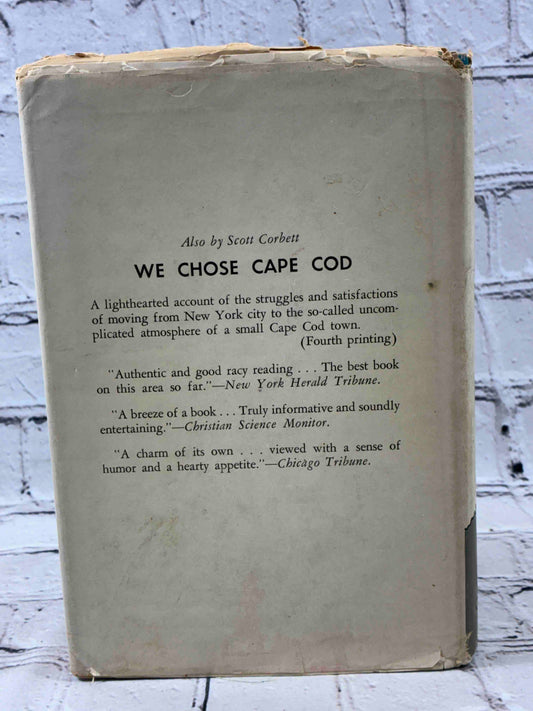 Also by Scott Corbett
WE CHOSE CAPE COD
A lighthearted account of the struggles and satisfactions
of moving from New York city to the so-called uncom-
plicated atmosphere of a small Cape Cod town.
(Fourth printing)
"Authentic and good racy reading . . . The best book
on this area so far."—New York Herald Tribune.
"A breeze of a book . . . Truly informative and soundly
entertaining."—Christian Science Monitor.
"A charm of its own . . . viewed with a sense of
humor and a hearty appetite."—Chicago Tribune.